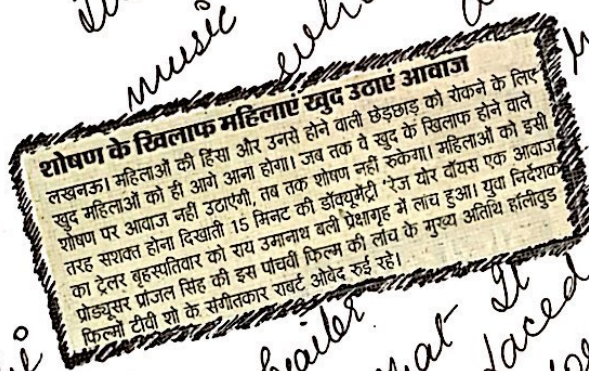 music
शोषण के खिलाफ महिलाएं खुद उठाएं आवाज
लखनऊ। महिलाओं की हिंसा और उनसे होने वाली छेड़छाड़ को रोकने के लिए
खुद महिलाओं को ही आगे आना होगा। जब तक वे खुद के खिलाफ होने वाले
शोषण पर आवाज नहीं उठाएंगी, तब तक शोषण नहीं रुकेगा। महिलाओं को इसी
तरह सशक्त होना दिखाती 15 मिनट की डॉक्यूमेंट्री 'रेज योर वॉयस एक आवाज
का ट्रेलर बृहस्पतिवार को राय उमानाथ बली प्रेक्षागृह में लांच हुआ। युवा निर्देशक
प्रोड्यूसर प्रांजल सिंह की इस पांचवी फिल्म की लांच के मुख्य अतिथि हॉलीवुड
फिल्मों टीवी शो के संगीतकार राबर्ट ओबेद रुई रहे।